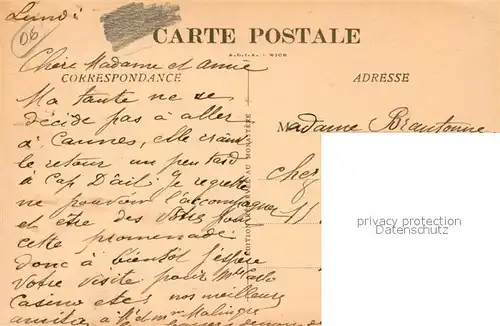 Lundi
06
CARTE POSTALE
Chère Madame et amie
CORRESPONDANCE
ADRESSE
Ma tante ne se
décide pas à aller
à Cannes, elle craint
le retour un peu tard
à Cap D'ail. Je regrette
ne pouvoir l'accompagner
et être des vôtres pour
cette promenade
donc à bientôt j'espère
votre visite pour
Casino etc. nos meilleurs
Madame Brantonne
chez
11
privacy protection
Datenschutz